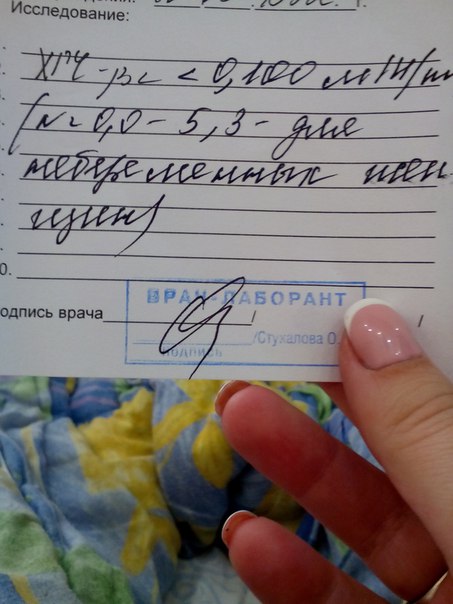 Исследование:
ХГЧ - <0,100 мМЕ/
(N=0,0 - 5,3 - для
небеременных жен
щин)
0.
одпись врача / /
ВРАЧ-ЛАБОРАНТ
/Стухалова О.
подпись